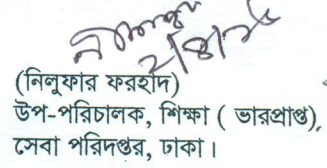 (নিলুফার ফরহাদ)
উপ-পরিচালক, শিক্ষা ( ভারপ্রাপ্ত),
সেবা পরিদপ্তর, ঢাকা।